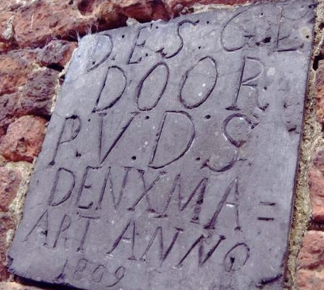 DESGE
DOOR
P.V.D.S
DEN X MA=
ART ANNO
1809